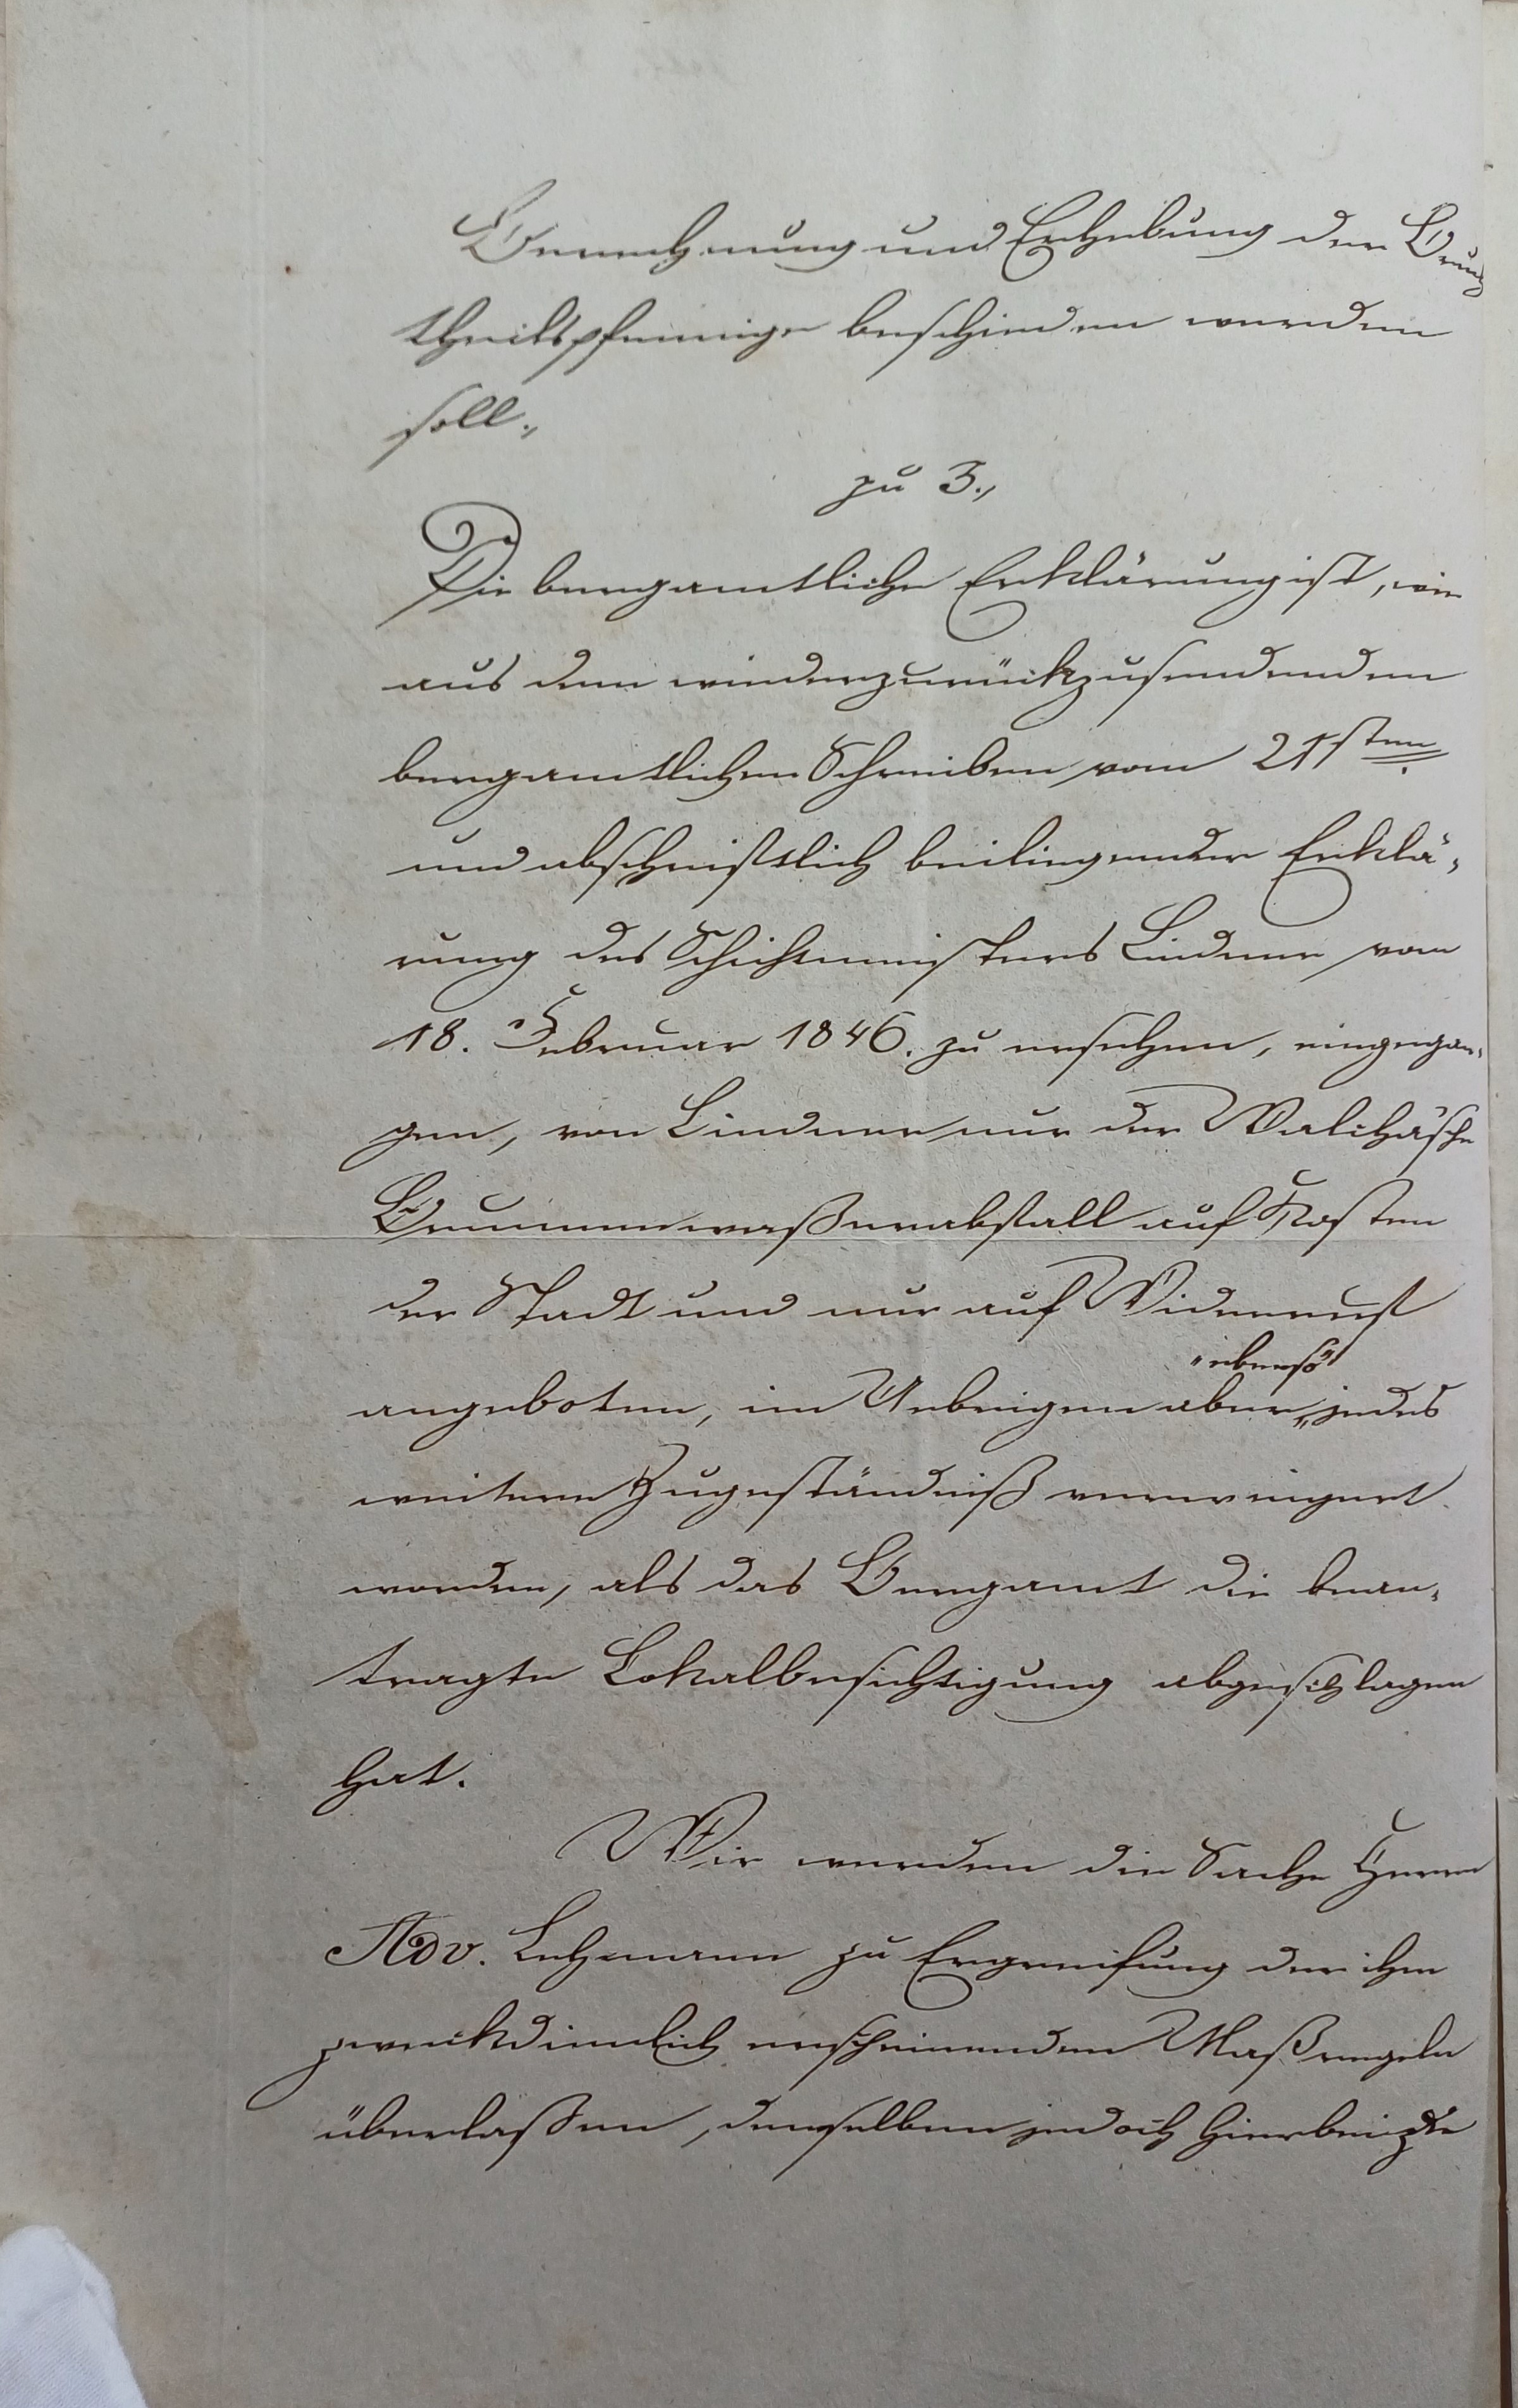 Berechnung und Erhebung der Brun
theilspfennige beschieden werden
soll.,
zu 3.,
Die bergamtliche Erklärung ist, wie
aus dem wiederzurückzusendenden
bergamtlichen Schreiben vom 21sten
und abschriftlich beiliegender Erklä-
rung des Schichtmeisters Lindner vom
18. Februar 1846. zu ersehen, eingegan-
gen, von Lindner nur der
Brunnenwaßerabfall auf Kosten
der Stadt und nur auf Widerruf
angeboten, im Uebrigen aber „ jedes
"ebenso"
weitere Zugeständniß verweigert
worden, als das Bergamt die bean-
tragte Lokalbesichtigung abgeschlagen
hat.
Wir werden die Sache Herrn
Adv. Lehmann zu Ergreifung der ihm
zweckdienlich erscheinenden Maßregeln
überlaßen, demselben jedoch hierbei